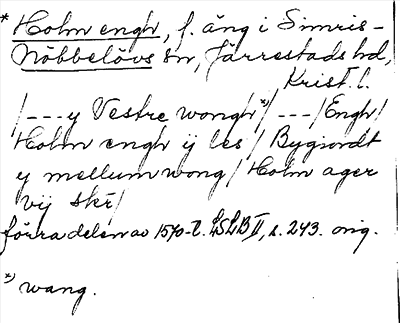 * Holm engh, f. äng i Simris-
Nöbbelövs sn, Järrestads hd,
Krist. l.
/--- y Vestre wongh *) --- /Engh/
Holm engh ÿ les / Bygiordt
y mellum wong / Holm ager
vij skr/
förra delen av 1570-t. LSLB II, s. 243. orig.
*) wang.